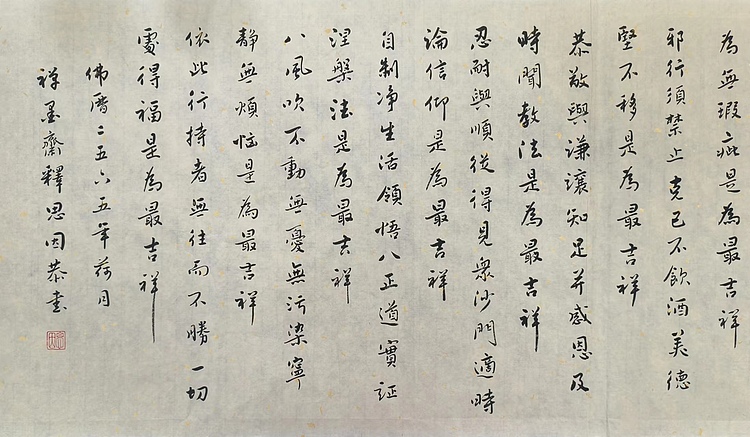 為無瑕疵是為最吉祥
邪行須禁止克己不飲酒美德
堅不移是為最吉祥
恭敬與謙讓知足并感恩及
時聞教法是為最吉祥
忍耐與順從得見眾沙門適時
論信仰是為最吉祥
自制净生活領悟八正道實証
涅槃法是為最吉祥
八風吹不動無憂無污染寧
靜無煩惱是為最吉祥
依此行持者無往而不勝一切
處得福是為最吉祥
佛曆二五六五年荷月
禅墨齋釋思因恭書